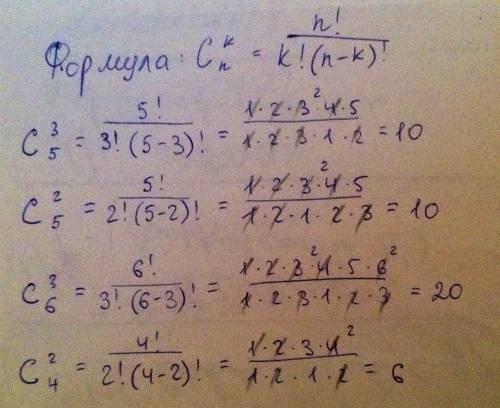 Формула: C_n^k = n! / k!(n-k)!
C_5^3 = 5! / 3!(5-3)! = 1·2·3·4·5 / 1·2·3·1·2 = 10
C_5^2 = 5! / 2!(5-2)! = 1·2·3·4·5 / 1·2·1·2·3 = 10
C_6^3 = 6! / 3!(6-3)! = 1·2·3·4·5·6 / 1·2·3·1·2·3 = 20
C_4^2 = 4! / 2!(4-2)! = 1·2·3·4 / 1·2·1·2 = 6